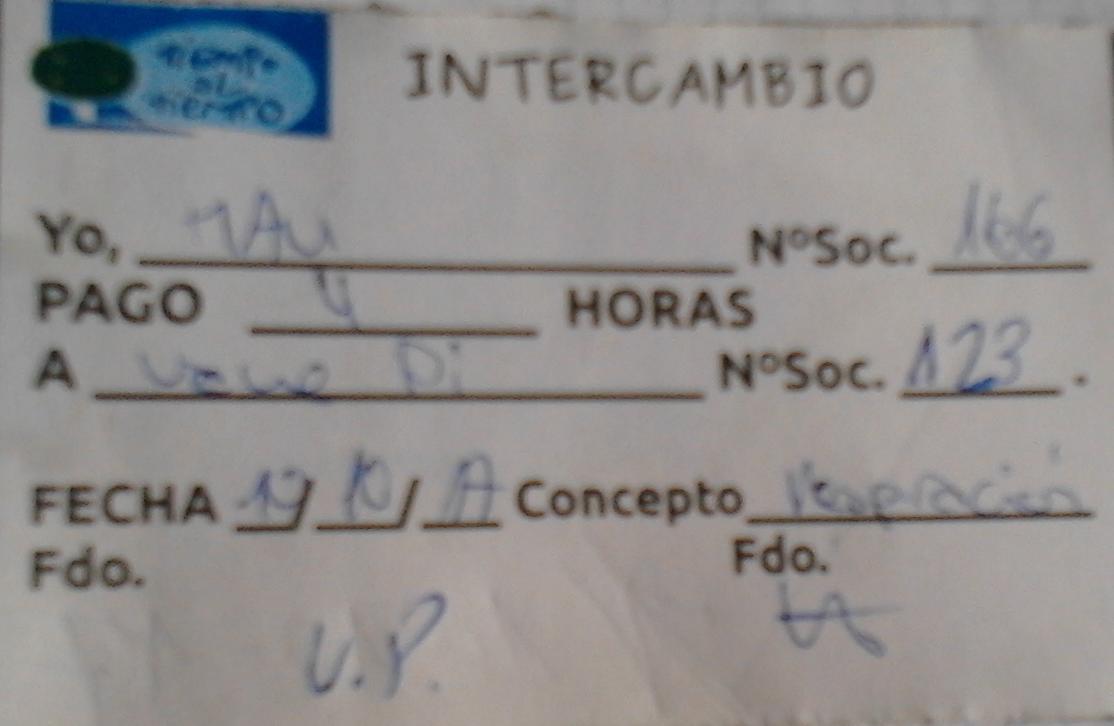 tiempo
al
tiempo
INTERCAMBIO
Yo, MAU NºSoc. 166
PAGO 4 HORAS
A Vene Pi NºSoc. 123.
FECHA 19/10/17 Concepto reparación
Fdo. Fdo.
V.P.